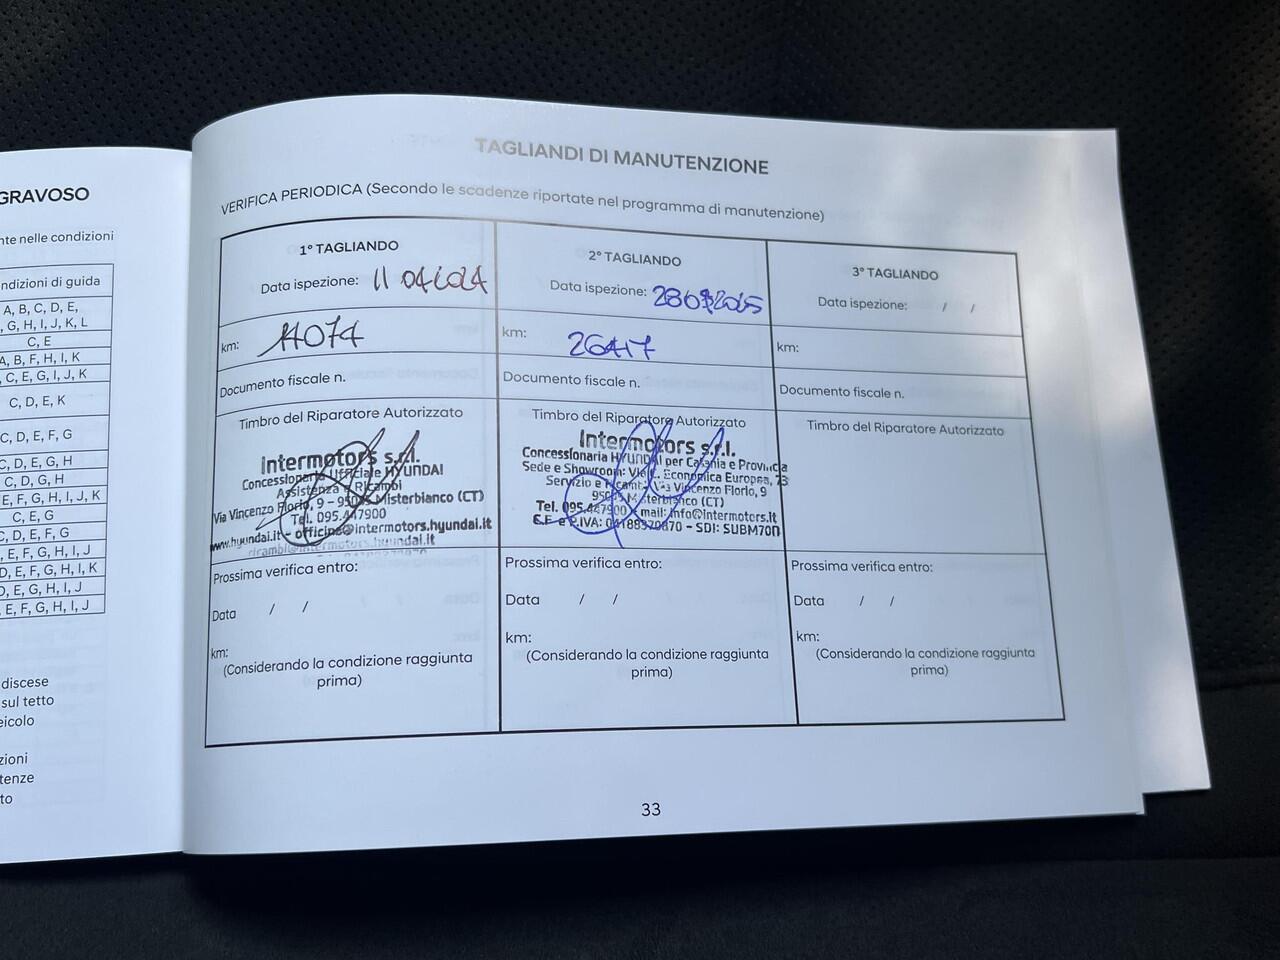 GRAVOSO
nte nelle condizioni
ndizioni di guida
A, B, C, D, E,
, G, H, I, J, K, L
C, E
A, B, F, H, I, K
, C, E, G, I, J, K
C, D, E, K
C, D, E, F, G
C, D, E, G, H
C, D, G, H
E, F, G, H, I, J, K
C, E, G
C, D, E, F, G
, E, F, G, H, I, J
D, E, F, G, H, I, K
D, E, G, H, I, J
, E, F, G, H, I, J
discese
sul tetto
eicolo
zioni
tenze
to
TAGLIANDI DI MANUTENZIONE
VERIFICA PERIODICA (Secondo le scadenze riportate nel programma di manutenzione)
1° TAGLIANDO
Data ispezione: 11 04 2024
km: 11074
Documento fiscale n.
Timbro del Riparatore Autorizzato
Intermotors s.r.l.
Concessionaria Ufficiale HYUNDAI
Assistenza e Ricambi
Via Vincenzo Florio, 9 - 95045 Misterbianco (CT)
Tel. 095.447900
www.hyundai.it - officina@intermotors.hyundai.it
ricambi@intermotors.hyundai.it
Prossima verifica entro:
Data / /
km:
(Considerando la condizione raggiunta
prima)
2° TAGLIANDO
Data ispezione: 2025
km: 26417
Documento fiscale n.
Timbro del Riparatore Autorizzato
Intermotors s.r.l.
Concessionaria HYUNDAI per Catania e Provincia
Sede e Showroom: Economica Europea, 73
Servizio e Ricambi: Via Vincenzo Florio, 9
95045 Misterbianco (CT)
Tel. 095.447900 mail: info@intermotors.it
C.F. e P.IVA: - SDI: SUBM70N
Prossima verifica entro:
Data / /
km:
(Considerando la condizione raggiunta
prima)
3° TAGLIANDO
Data ispezione: / /
km:
Documento fiscale n.
Timbro del Riparatore Autorizzato
Prossima verifica entro:
Data / /
km:
(Considerando la condizione raggiunta
prima)
33